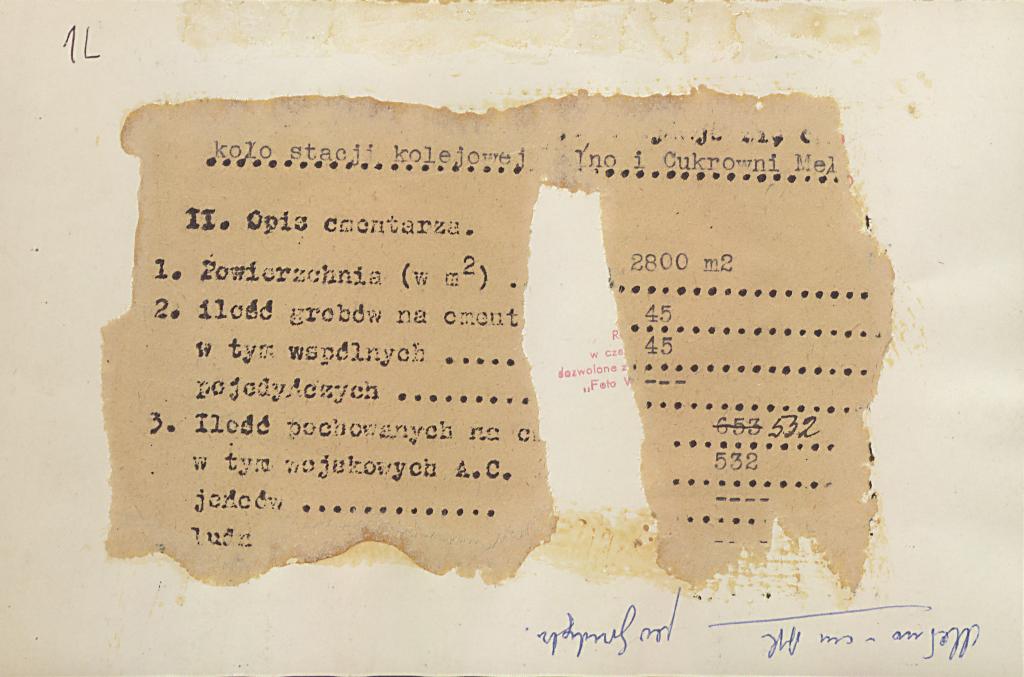 1L
koło stacji kolejowej łno i Cukrowni Meł
II. Opis cmentarza.
1. Powierzchnia (w m2) . 2800 m2
2. ilość grobów na cment 45
w tym wspólnych ..... 45
pojedyńczych .......... ---
3. Ilość pochowanych na c 653 532
w tym wojskowych A.C. 532
jeńców .............. ----
ludz ----
R
w cze
dozwolone z
"Foto W